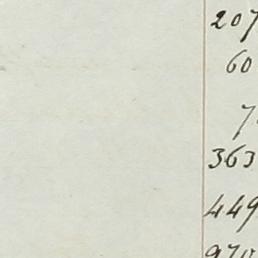 207
60
7
363
449
970